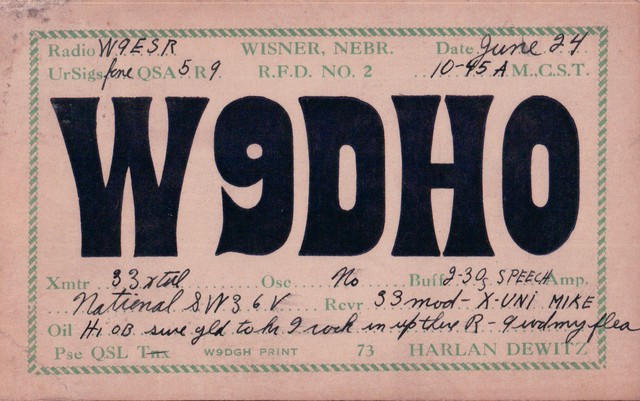 Radio W9ESR WISNER, NEBR. Date June 24
UrSigs fone QSA 5 R 9 R.F.D. NO. 2 10-45 A.M.C.S.T.
W9DHO
Xmtr 33 xtal Osc. No Buff 2-30s SPEECH Amp.
National SW3 6V Rcvr 33 mod - X-UNI MIKE
Oil Hi OB sure gld to hr I rock in up there R-9 wid my flea
Pse QSL Tnx W9DGH PRINT 73 HARLAN DEWITZ